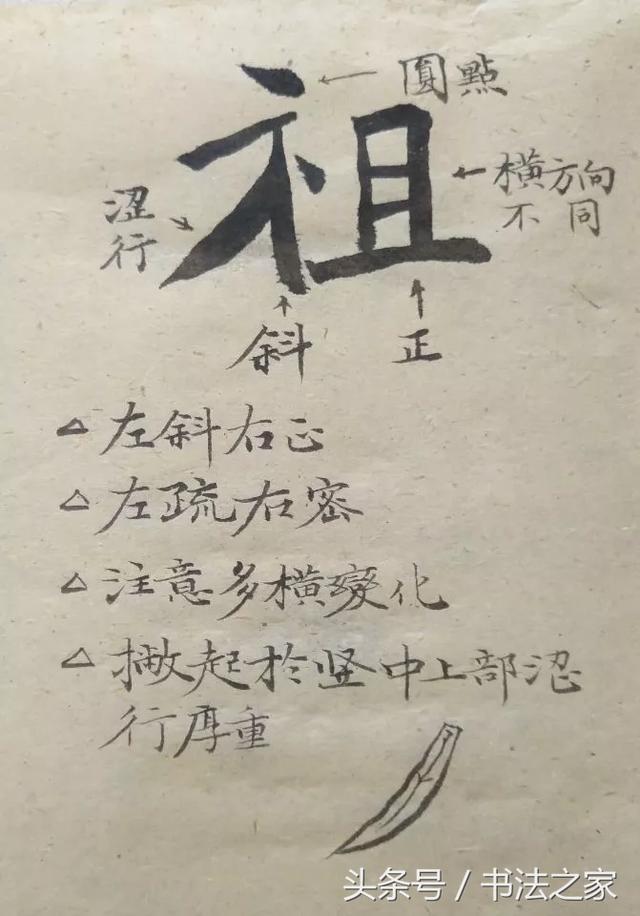 祖
圓點
橫方向
不同
涩行
斜
正
△左斜右正
△左疏右密
△注意多橫變化
△撇起於竖中上部涩
行厚重
头条号／书法之家